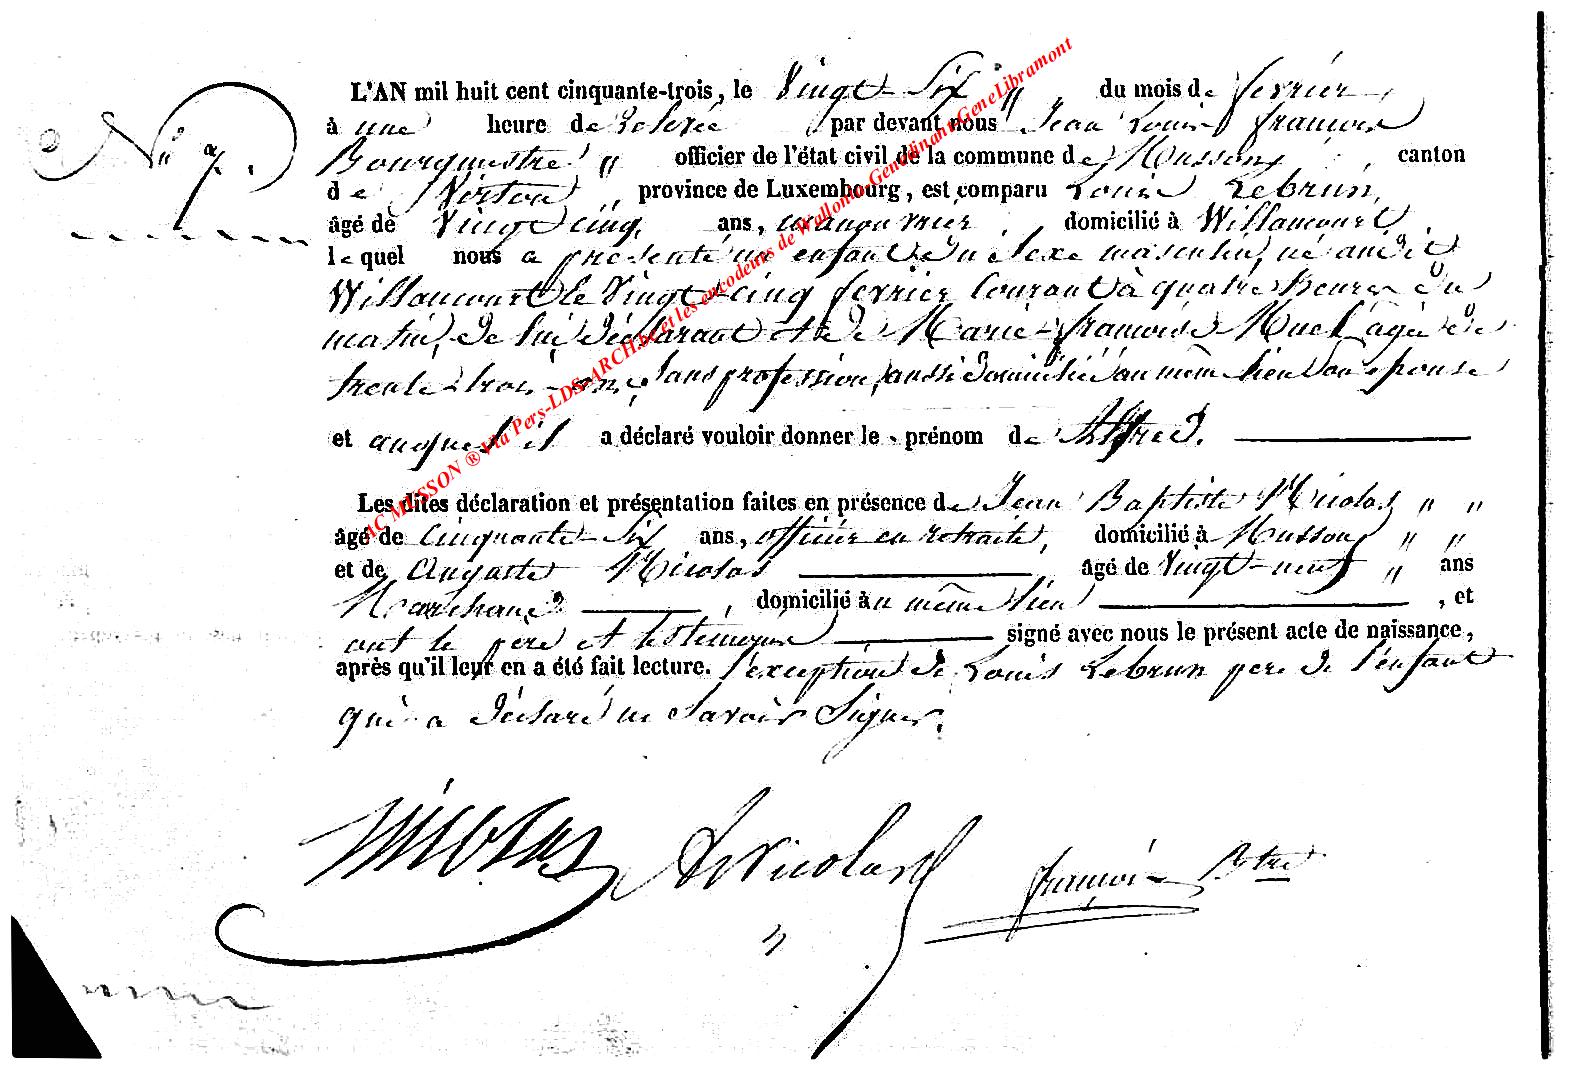 L'AN mil huit cent cinquante-trois, le Vingt-Six " du mois de fevrier,
à une heure de relevée par devant nous Jean Louis françois
N° 7.
Bourgmestre " officier de l'état civil de la commune de Musson, canton
de Virton, province de Luxembourg, est comparu Louis Lebrun,
âgé de Vingt cinq, ans, manouvrier, domicilié à Willancourt,
lequel nous a présenté un enfant du sexe masculin, né audit
Willancourt le Vingt-cinq fevrier courant à quatre heures du
matin, de lui déclarant et de Marie-françoise agée de
trente-trois ans, sans profession, aussi domiciliée au même lieu son epouse
et auquel il a déclaré vouloir donner le prénom de Alfred.
Les dites déclaration et présentation faites en présence de Jean Baptiste Nicolas " "
âgé de Cinquante-Six ans, officier en retraite, domicilié à Musson " "
et de Auguste Nicolas âgé de Vingt-neuf " ans
Marchand, domicilié au même lieu, et
ont le père et les témoins signé avec nous le présent acte de naissance,
après qu'il leur en a été fait lecture. l'exception de Louis Lebrun pere de l'enfant
qui a déclaré ne savoir signer.
Nicolas Nicolas françois Bstre
AC MUSSON ® Via Pers-LDS-ARCH.be et les encodeurs de Wallonie-GenDinant-GeneLibramont